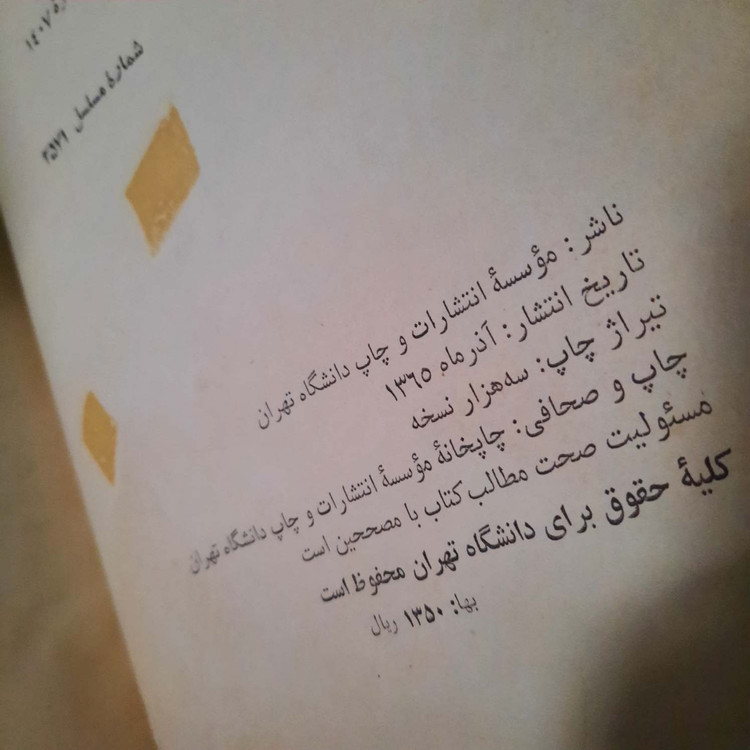 ۱۴۰۷
شمارهٔ مسلسل
ناشر: مؤسسهٔ انتشارات و چاپ دانشگاه تهران
تاریخ انتشار: آذرماه ۱۳۶۵
تیراژ چاپ: سه‌هزار نسخه
چاپ و صحافی: چاپخانهٔ مؤسسهٔ انتشارات و چاپ دانشگاه تهران
مسئولیت صحت مطالب کتاب با مصححین است
کلیهٔ حقوق برای دانشگاه تهران محفوظ است
بها: ۱۳۵۰ ریال